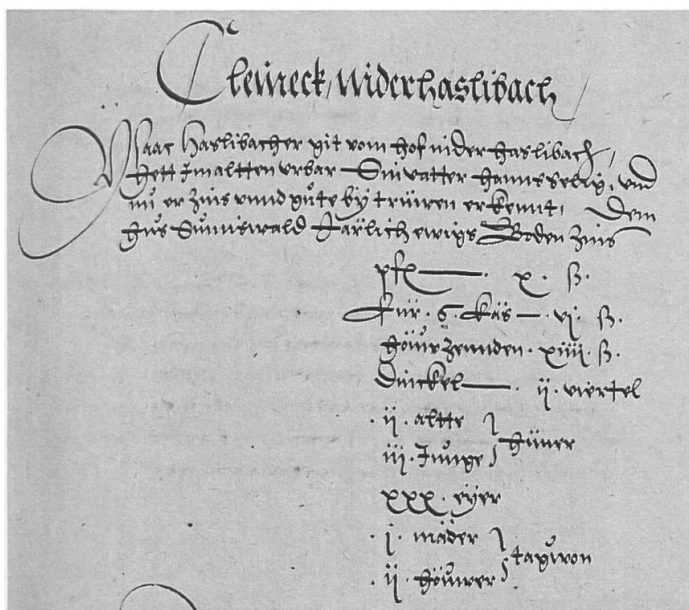 Cleüreck, Niderhaslibach
Ysaac Haslibacher git vom hof nider haslibach,
Hett Jm altten urbar Sin vatter Hanns selig, und
nü er zins unnd gůte by trüwen erkennt, Dem
Hus Sumiswald Järlich ewigs Boden Zins
pfen. x. ß.
Für . 6. käs vj. ß.
Höüwzennden. xiiij ß.
Dinckel . ij. viertel
. ij. altte } Hüner
iij. Junge
xxx. eÿer
. j. mäder } tagwon
. ij. Höüwer